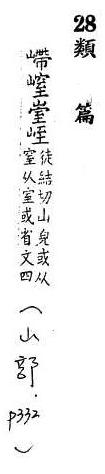 28 類 篇
嵽峌 徒結切山皃或从
窒从室或省文四
（山部．p332）